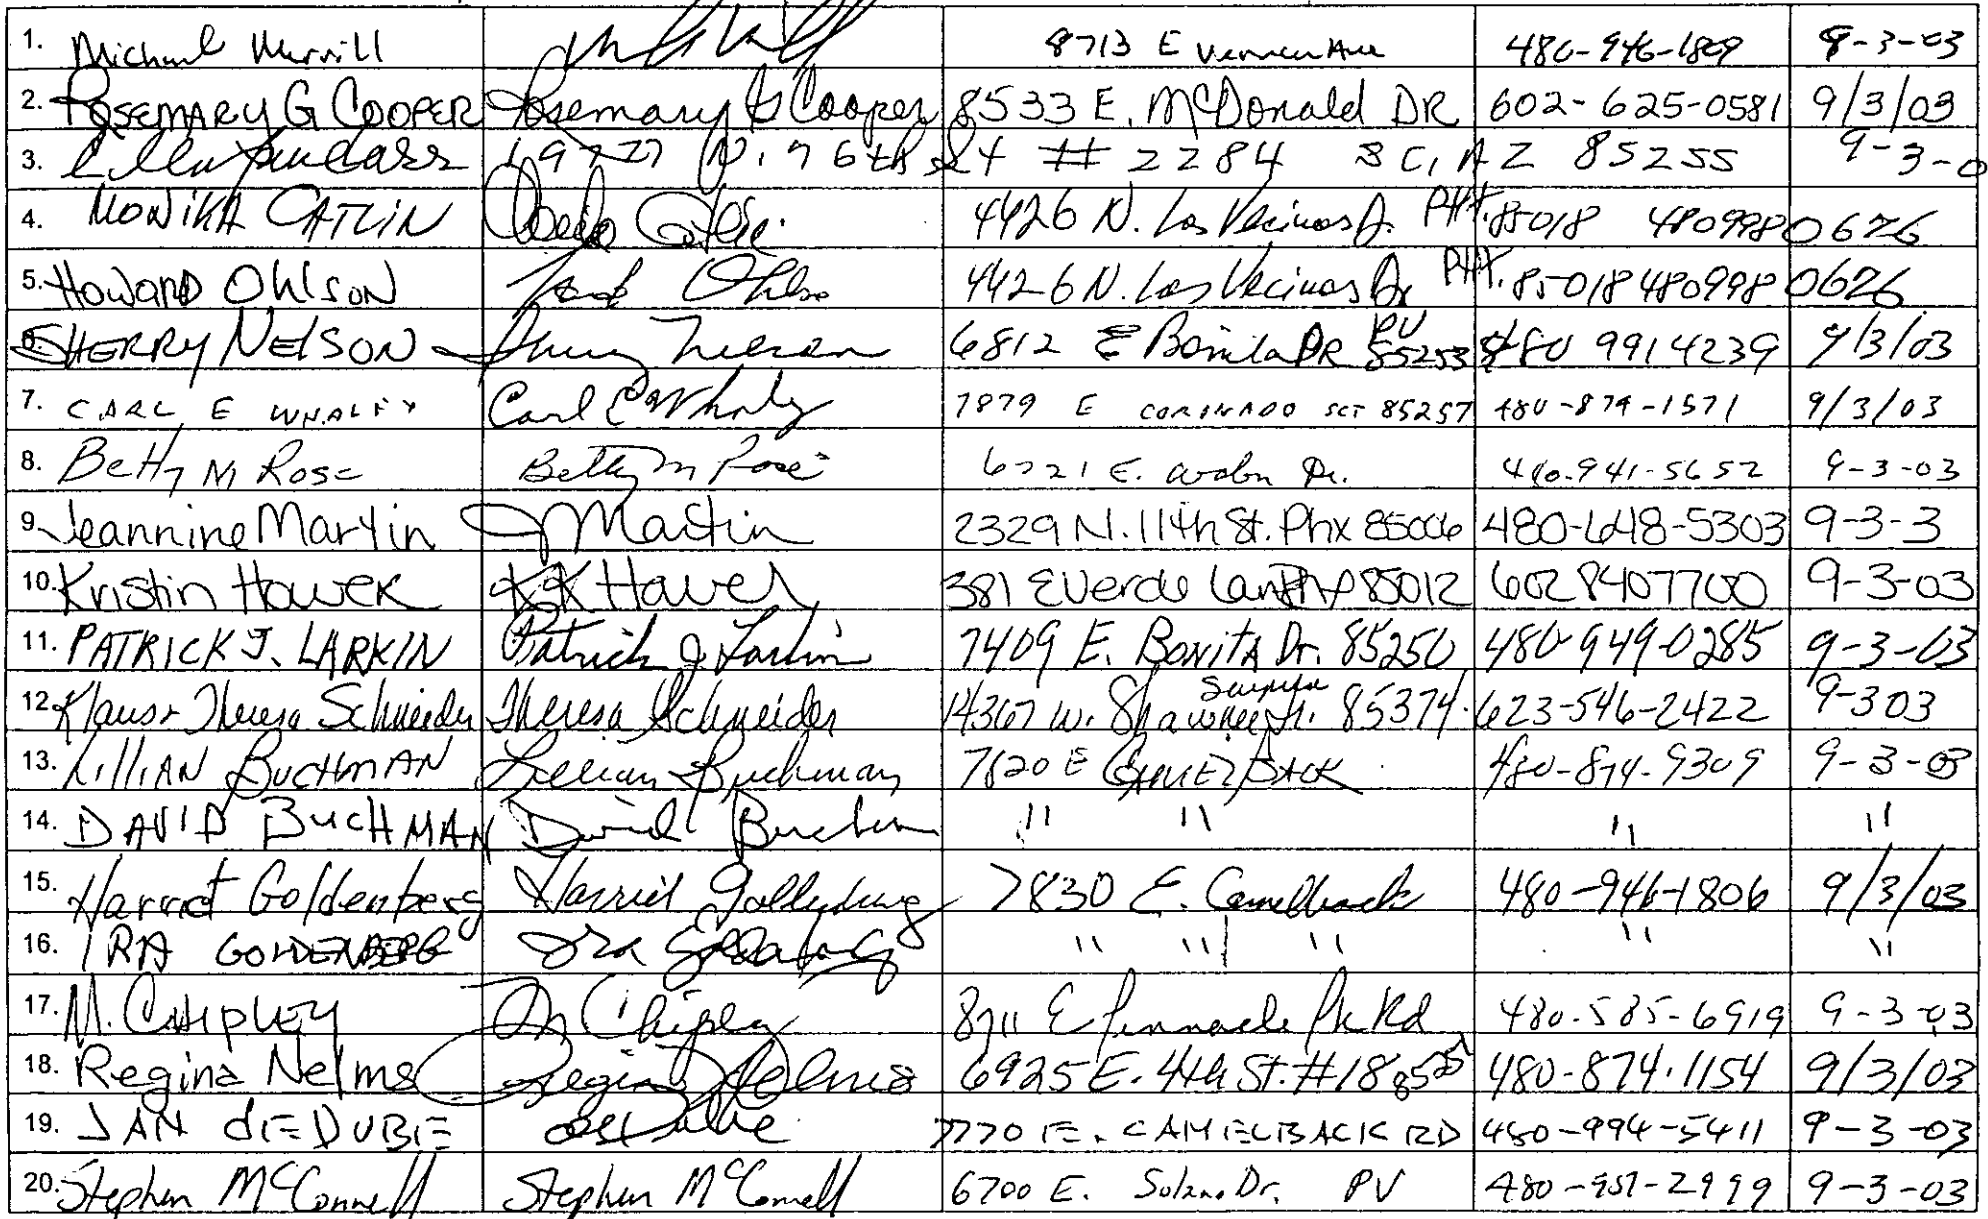 1. Michael Merrill 8713 E Vernon Ave 480-946-1809 9-3-03
2. ROSEMARY G COOPER Rosemary G Cooper 8533 E. McDonald DR 602-625-0581 9/3/03
3. 19777 N. 76th St # 2284 SC, AZ 85255 9-3-0
4. MONIKA CATLIN 4426 N. Los Vecinos Dr. PHX. 85018 4809980626
5. Howard Ohlson Ohlso 4426 N. Los Vecinos Dr PHX. 85018 4809980626
6. SHERRY NELSON Sherry Nelson 6812 E Bonita DR PV 85253 480 9914239 9/3/03
7. CARL E WHALEY Carl E Whaley 7879 E CORONADO SCT 85257 480-874-1571 9/3/03
8. Betty M Rose Betty M Rose 6721 E. Avalon Dr. 480-941-5652 9-3-03
9. Jeannine Martin J Martin 2329 N. 11th St. Phx 85006 480-648-5303 9-3-3
10. Kristin Hower KK Hower 381 E Verde Lan Phx 85012 602 8407700 9-3-03
11. PATRICK J. LARKIN Patrick J Larkin 7409 E. Bonita Dr. 85250 480-949-0285 9-3-03
12. Klaus + Theresa Schneider Theresa Schneider 14367 W. Shawnee Tr. Surprise 85374. 623-546-2422 9-303
13. LILLIAN BUCHMAN Lillian Buchman 7620 E CAMELBACK 480-874-9309 9-3-03
14. DAVID BUCHMAN David Buchman " " " "
15. Harriet Goldenberg Harriet Goldenberg 7830 E. Camelback 480-946-1806 9/3/03
16. IRA GOLDENBERG Ira Goldenberg " " " " "
17. M. CHIPLEY M Chipley 8711 E Pinnacle Pk Rd 480.585-6919 9-3-03
18. Regina Nelms Regina Nelms 6925 E. 4th St. #1 85251 480-874.1154 9/3/03
19. JAN dEDUBE 7770 E. CAMELBACK RD 480-994-5411 9-3-03
20. Stephen McConnell Stephen McConnell 6700 E. Solano Dr. PV 480-951-2999 9-3-03